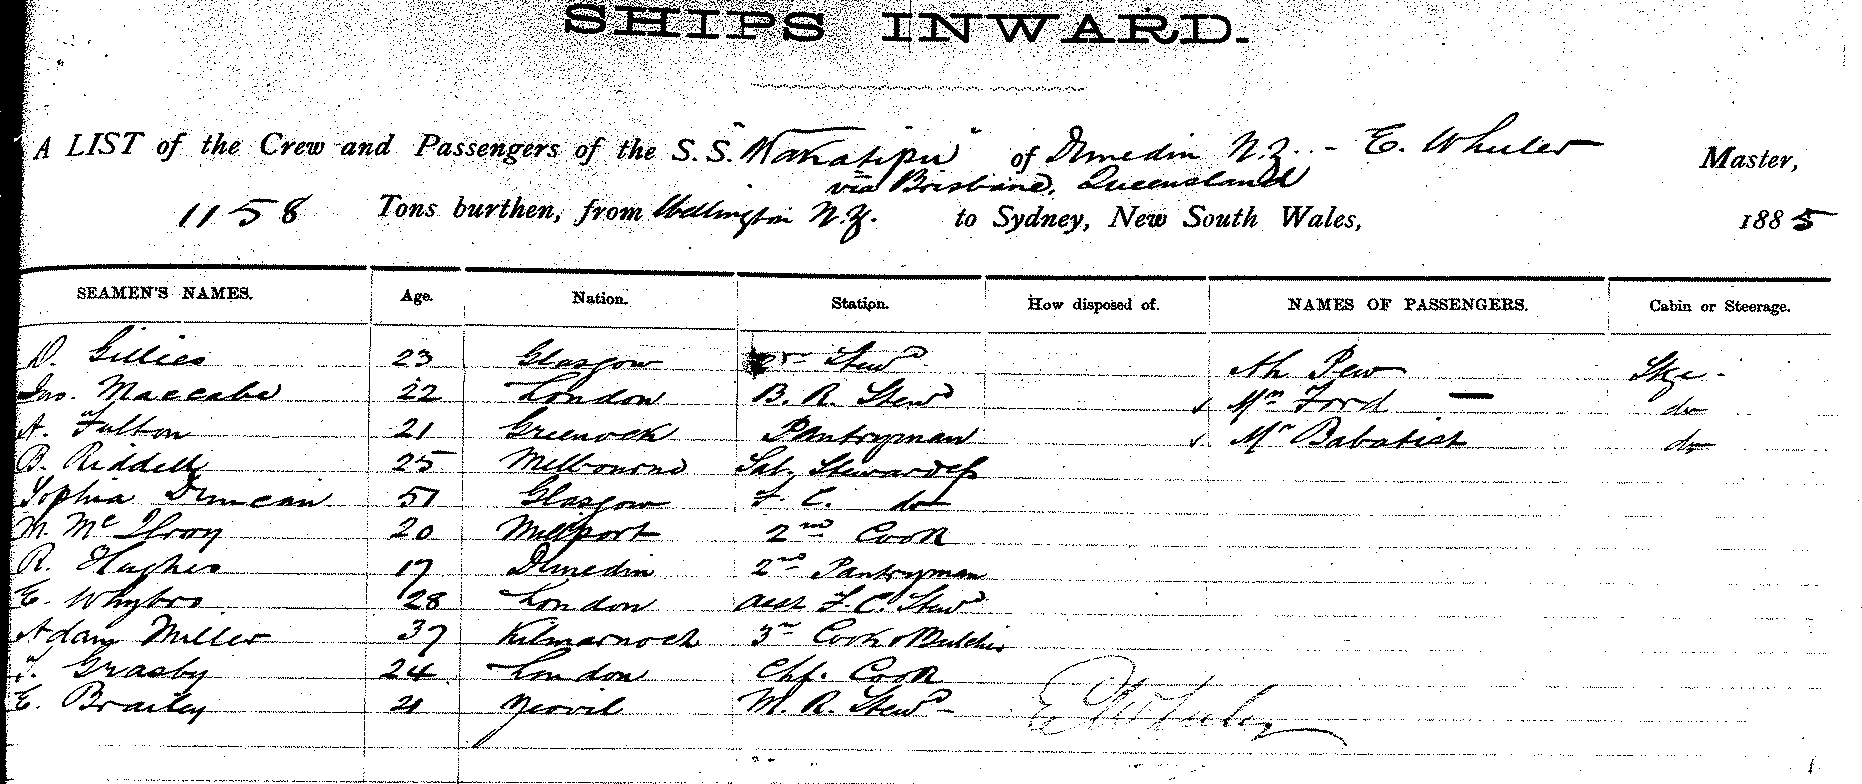 SHIPS INWARD.
A LIST of the Crew and Passengers of the S.S. "Wakatipu" of Dunedin N.Z. - E. Wheeler Master,
via Brisbane, Queensland
1158 Tons burthen, from Wellington N.Z. to Sydney, New South Wales, 1885
SEAMEN'S NAMES. Age. Nation. Station. How disposed of. NAMES OF PASSENGERS. Cabin or Steerage.
D. Gillies 23 Glasgow Stewd Ah Pew Stge.
Jno. Maccabe 22 London B. R. Stewd Mrs Ford — do
A. Fulton 21 Greenock Pantryman Mr Babatist do
B. Riddell 25 Melbourne Sal. Stewardess
Sophia Duncan 51 Glasgow F. C. do
M. McIlroy 20 Millport 2nd Cook
R. Hughes 17 Dunedin 2nd Pantryman
E. Whybro 28 London Asst F. C. Stewd
Adam Miller 37 Kilmarnock 3rd Cook & Butcher
T. Grasby 24 London Chf. Cook
E. Brailey 21 Yeovil M. R. Stewd
E Wheeler